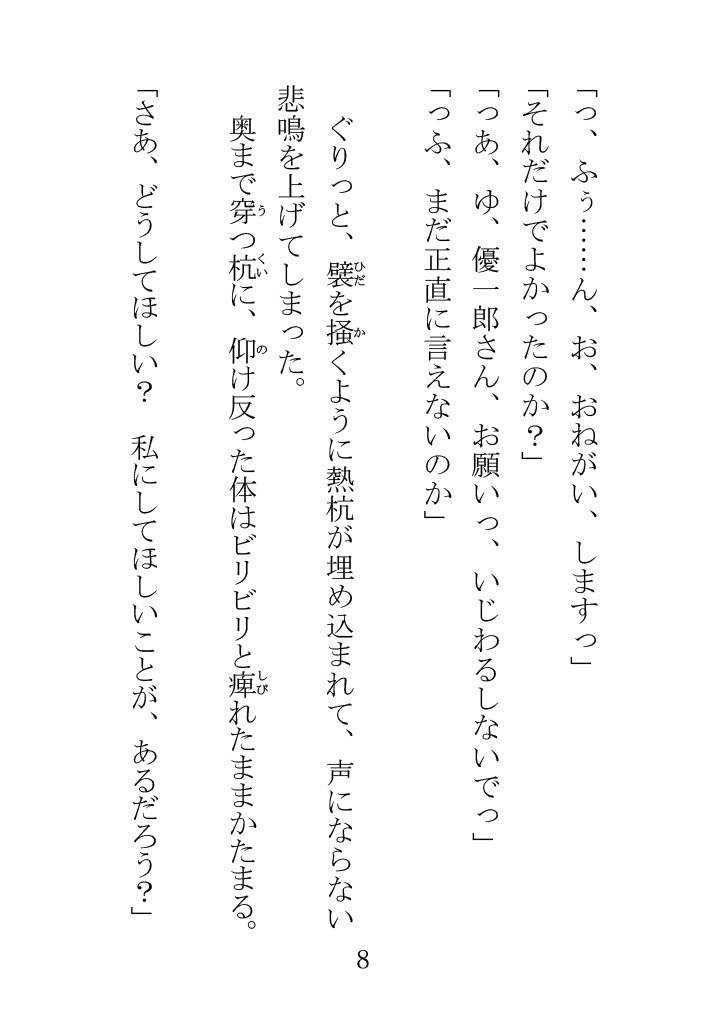 「っ、ふぅ……ん、お、おねがい、しますっ」
「それだけでよかったのか？」
「っあ、ゆ、優一郎さん、お願いっ、いじわるしないでっ」
「っふ、まだ正直に言えないのか」
ぐりっと、襞を掻くように熱杭が埋め込まれて、声にならない
悲鳴を上げてしまった。
奥まで穿つ杭に、仰け反った体はビリビリと痺れたままかたまる。
「さあ、どうしてほしい？　私にしてほしいことが、あるだろう？」
8